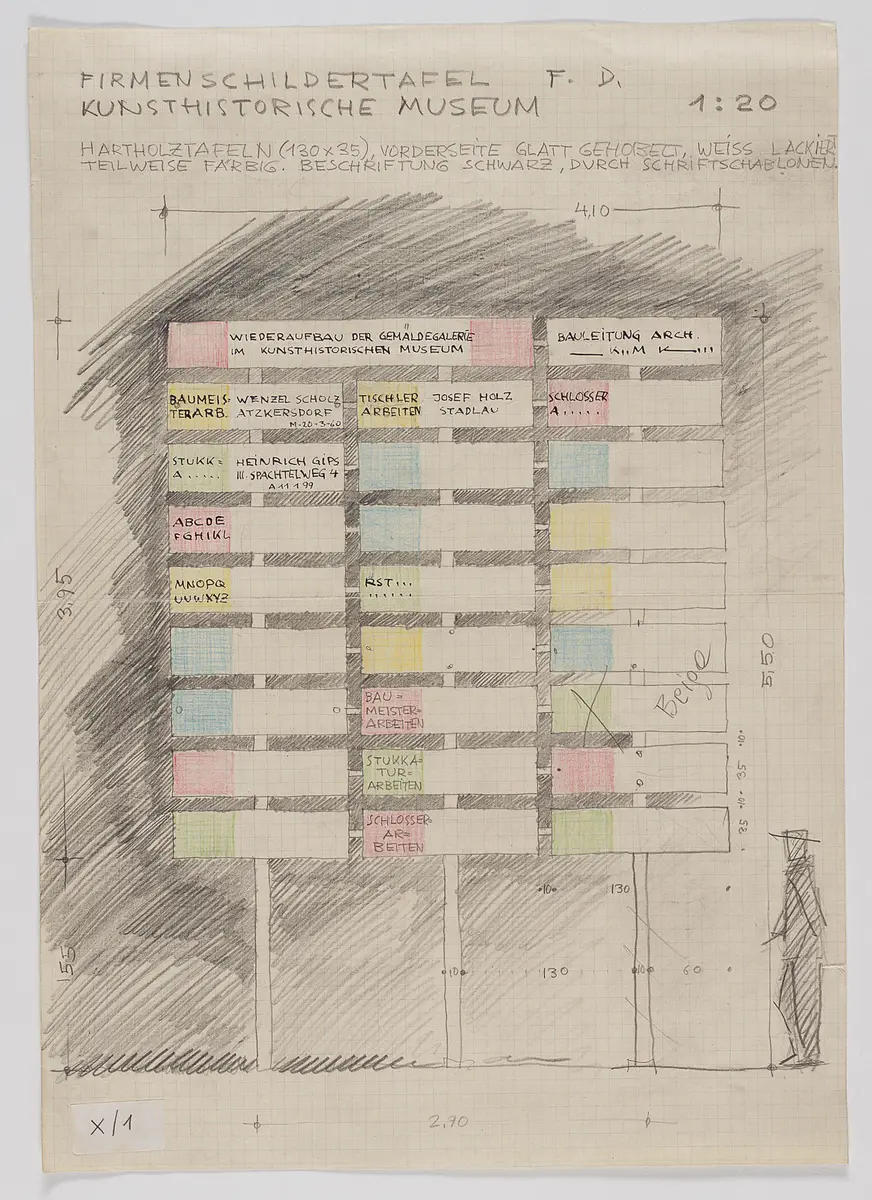 FIRMENSCHILDERTAFEL F. D.
KUNSTHISTORISCHE MUSEUM 1:20
HARTHOLZTAFELN (130x35), VORDERSEITE GLATT GEHOBELT, WEISS LACKIERT
TEILWEISE FÄRBIG. BESCHRIFTUNG SCHWARZ, DURCH SCHRIFTSCHABLONEN.
4,10
WIEDERAUFBAU DER GEMÄLDEGALERIE
IM KUNSTHISTORISCHEN MUSEUM
BAULEITUNG ARCH.
BAUMEIS=
TERARB.
WENZEL SCHOLZ
ATZKERSDORF
M-20-3-60
TISCHLER
ARBEITEN
JOSEF HOLZ
STADLAU
SCHLOSSER
A.....
STUKK=
A.....
HEINRICH GIPS
III. SPACHTELWEG 4
A 11 1 99
ABCDE
FGHIKL
MNOPQ
UVWXYZ
RST...
3,95
5,50
Beige
BAU=
MEISTER=
ARBEITEN
STUKKA=
TUR=
ARBEITEN
SCHLOSSER=
AR=
BEITEN
10
35
10
35
10 130
155
10 130 10 60
2,90
X/1